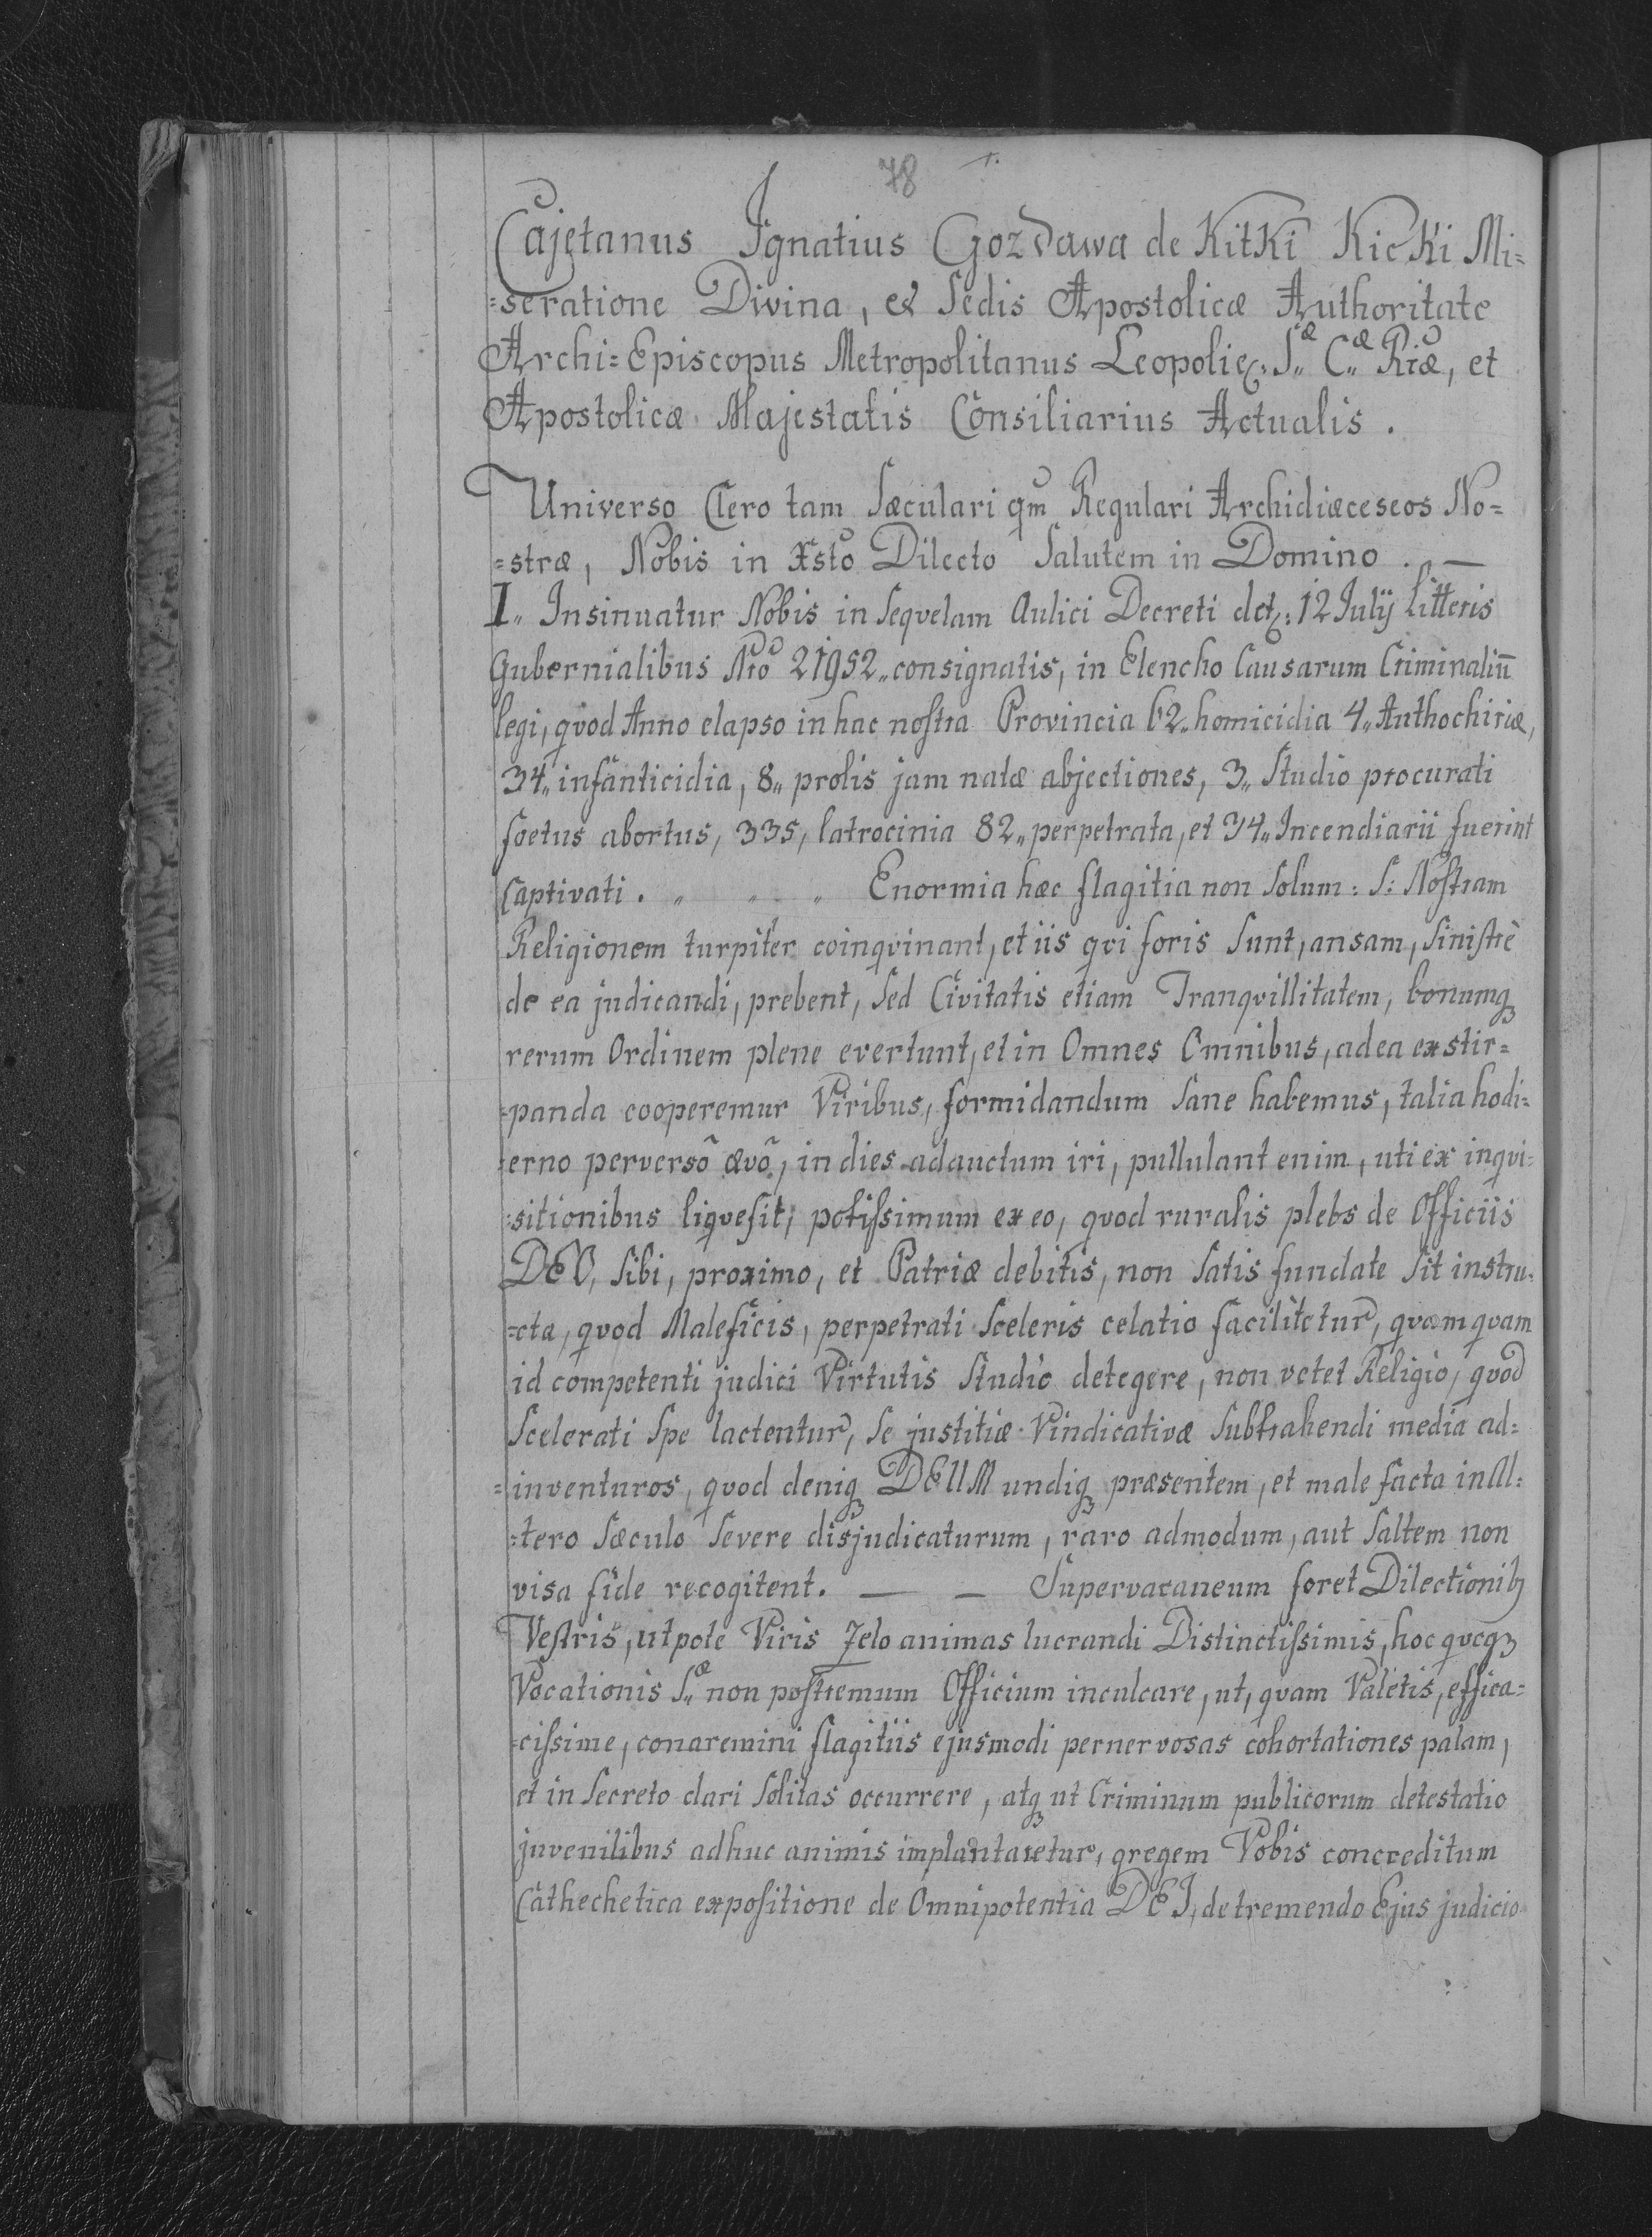 78
Cajetanus Ignatius Gozdawa de Kitki Kicki Mi=
=seratione Divina, et Sedis Apostolicæ Authoritate
Archi=Episcopus Metropolitanus Leopolien: S„æ C„æ Riæ, et
Apostolicæ Majestatis Consiliarius Actualis.
Universo Clero tam Sæculari qm Regulari Archidiæceseos No=
=stræ, Nobis in Xsto Dilecto Salutem in Domino. —
I„ Insinuatur Nobis in Seqvelam Aulici Decreti dct: 12 Julÿ Litteris
Gubernialibus Nro 21952„ consignatis, in Elencho Causarum Criminaliū
legi, qvod Anno elapso in hac nostra Provincia 62„ homicidia 4„ Anthochiriæ,
34„ infanticidia, 8„ prolis jam natæ abjectiones, 3„ Studio procurati
foetus abortus, 335, latrocinia 82„ perpetrata, et 34„ Incendiarii fuerint
Captivati. „ „ „ Enormia hæc flagitia non Solum: S: Nostram
Religionem turpiter coinqvinant, et iis qvi foris Sunt, ansam, Sinistrè
de ea judicandi, prebent, Sed Civitatis etiam Tranqvillitatem, bonumq
rerum Ordinem plene evertunt, et in Omnes Omnibus, ad ea exstir=
=panda cooperemur Viribus, formidandum Sane habemus, talia hodi=
=erno perversō ævō, in dies adauctum iri, pullulant enim, uti ex inqvi=
=sitionibus liqvefit, potissimum ex eo, qvod ruralis plebs de Officiis
DEO, Sibi, proximo, et Patriæ debitis, non Satis fundate Sit instru=
=cta, qvod Maleficis, perpetrati Sceleris celatio facilitetur, qvamqvam
id competenti judici Virtutis Studio detegere, non vetet Religio, qvod
Scelerati Spe lactentur, Se justitiæ Vindicativæ Subtrahendi media ad=
=inventuros, qvod deniq DEUM undiq præsentem, et male facta in Al=
=tero Sæculo Severe disjudicaturum, raro admodum, aut Saltem non
visa fide recogitent. — — Supervacaneum foret Dilectionib
Vestris, utpote Viris Zelo animas lucrandi Distinctissimis, hoc qvoq
Vocationis S„æ non postremum Officium inculcare, ut, qvam Valetis, effica=
=cissime, conaremini flagitiis ejusmodi pernervosas cohortationes palam,
et in Secreto dari Solitas occurrere, atq ut Criminum publicorum detestatio
juvenilibus adhuc animis implantaretur, gregem Vobis concreditum
Cathechetica expositione de Omnipotentia DEI, de tremendo Ejus judicio